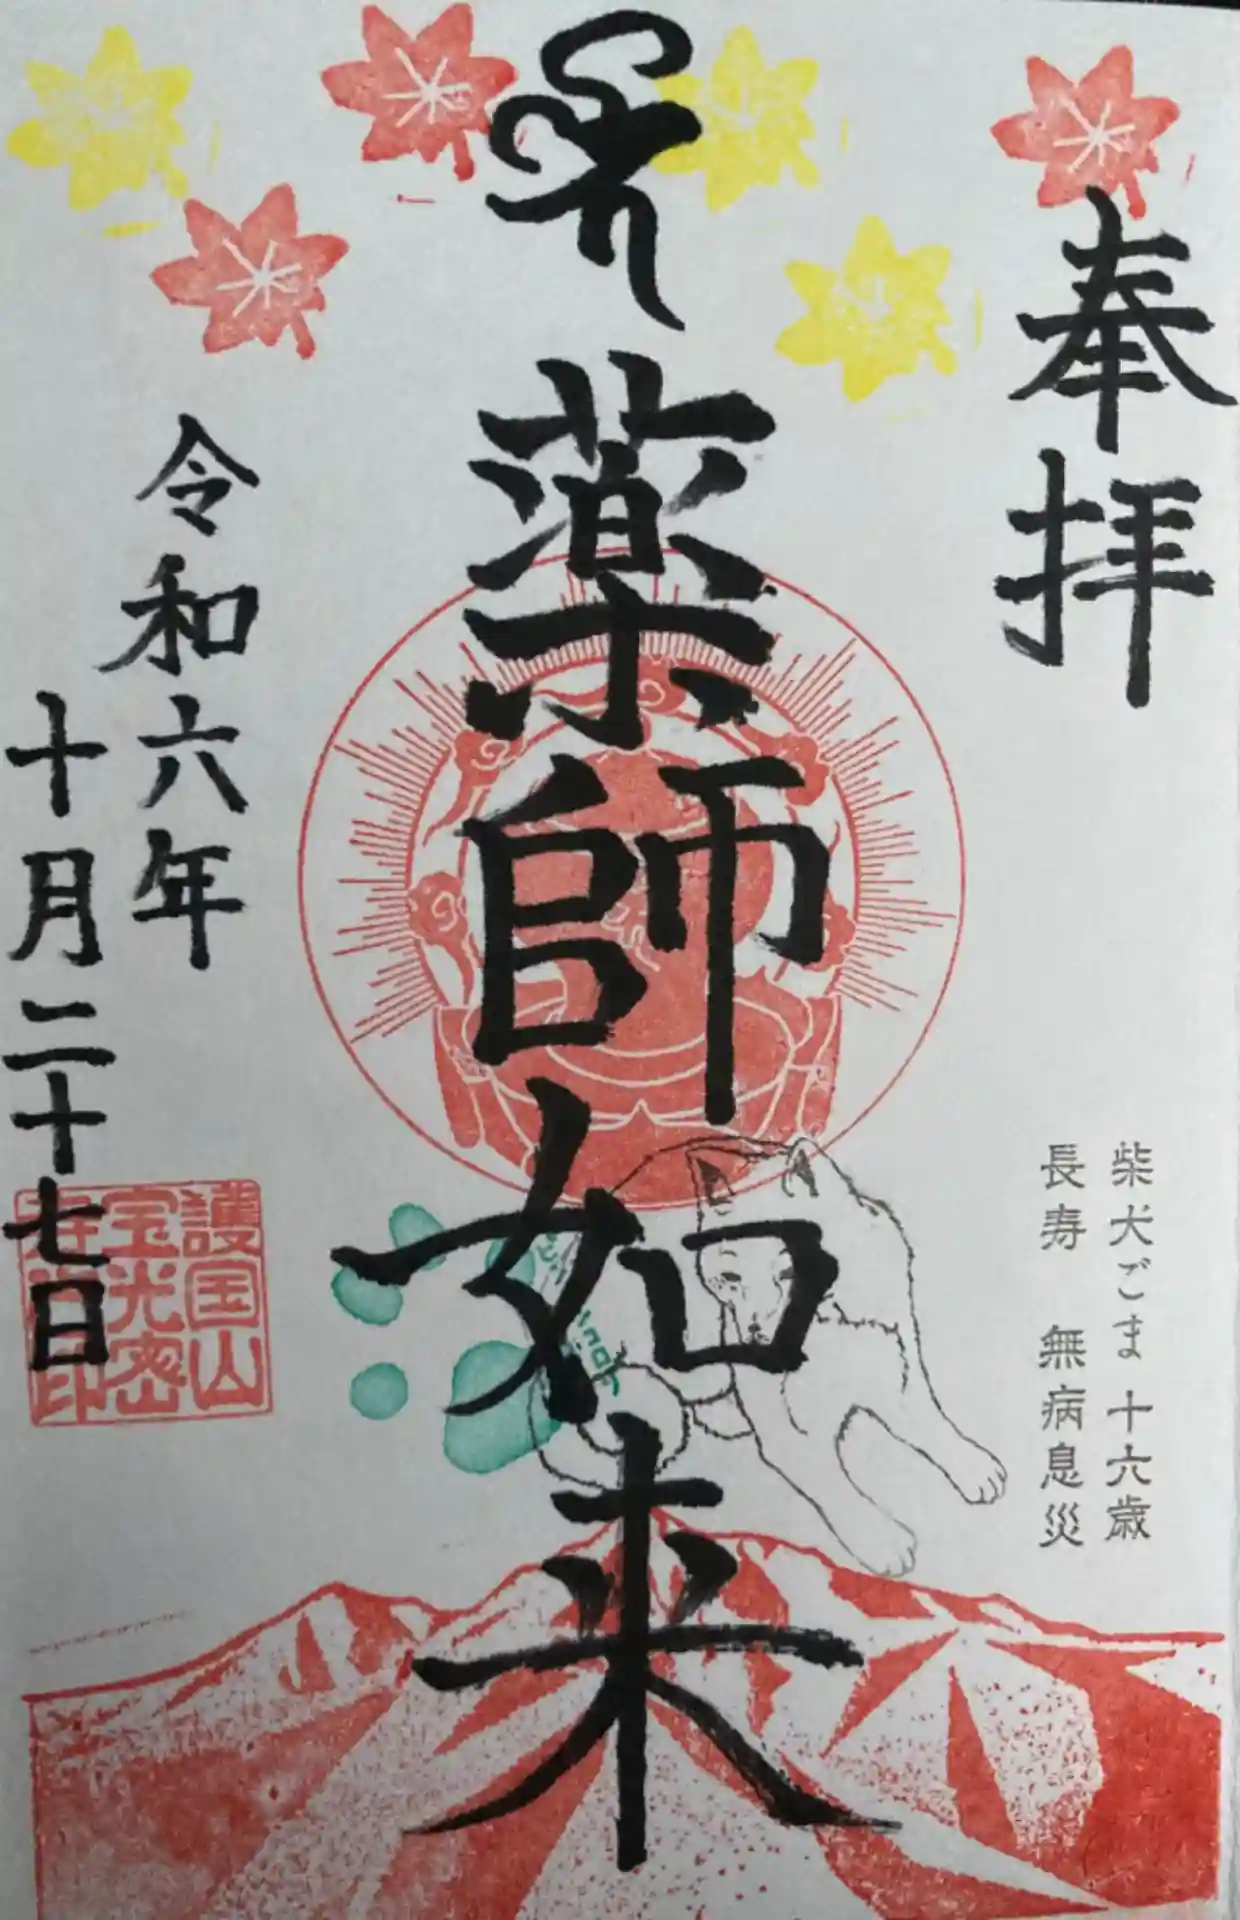 奉拝
柴犬ごま 十六歳
長寿 無病息災
薬師如来
令和六年
十月二十七日
護国山
宝光密
寺光印